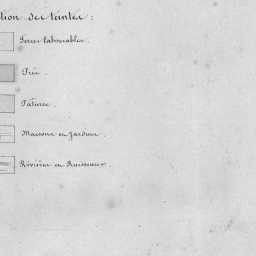 tion des teintes :
Terres labourables.
Prés.
Pâtures.
Maisons en Jardins.
Rivières en Ruisseaux.